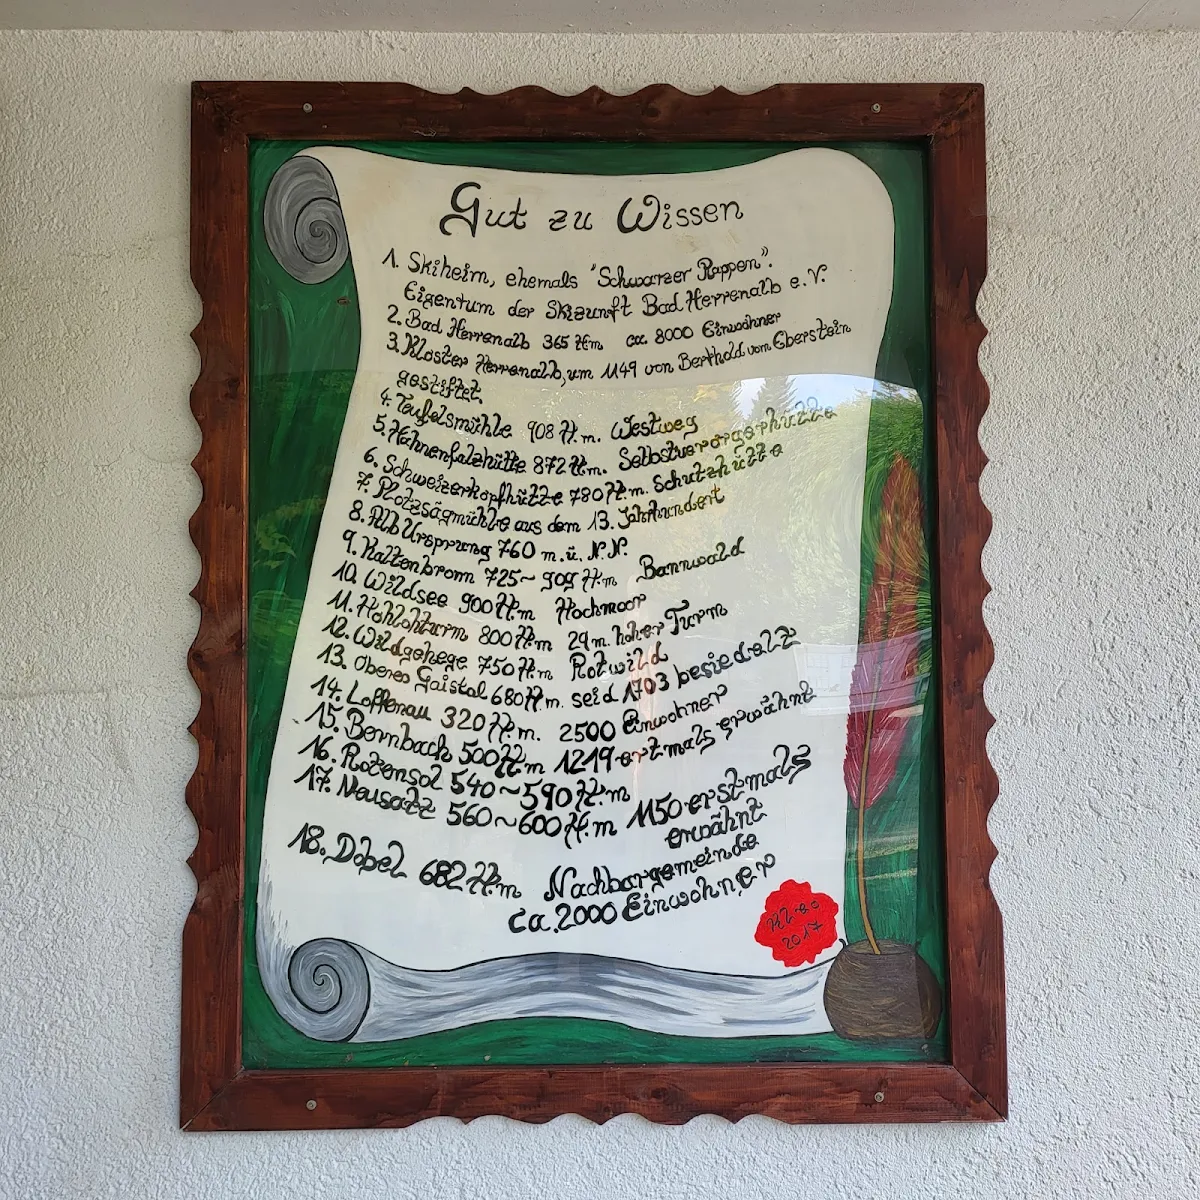 Gut zu Wissen
1. Skiheim, ehemals "Schwarzer Rappen".
Eigentum der Skizunft Bad Herrenalb e.V.
2. Bad Herrenalb 365 H.m ca. 8000 Einwohner
3. Kloster Herrenalb, um 1149 von Berthold vom Eberstein
gestiftet.
4. Teufelsmühle 908 H.m. Westweg
5. Hahnenfalzhütte 872 H.m. Selbstversorgerhütte
6. Schweizerkopfhütte 780 H.m. Schutzhütte
7. Plotzsägmühle aus dem 13. Jahrhundert
8. Alb Ursprung 760 m.ü. N.N.
9. Kaltenbronn 725~909 H.m Bannwald
10. Wildsee 900 H.m Hochmoor
11. Hohlohturm 800 H.m 29 m. hoher Turm
12. Wildgehege 750 H.m Rotwild
13. Oberes Gaistal 680 H.m. seid 1703 besiedelt
14. Loffenau 320 H.m. 2500 Einwohner
15. Bernbach 500 H.m 1219 ertmals erwähnt
16. Rotensol 540~590 H.m
17. Neusatz 560~600 H.m 1150 erstmals
erwähnt
18. Dobel 682 H.m Nachbargemeinde
ca. 2000 Einwohner
2017